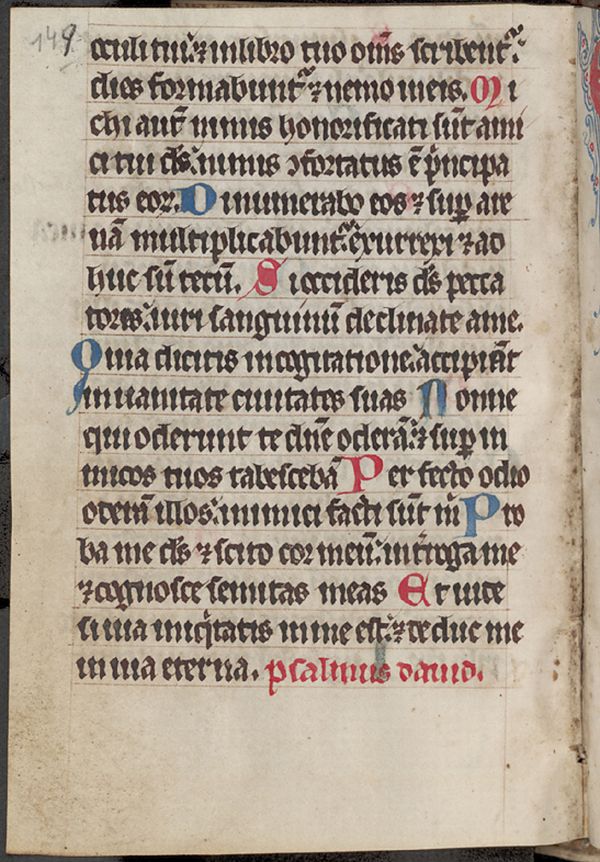 149
occuli tui: ⁊ in libro tuo om̄s scribentᷣ:
dies formabuntᷣ ⁊ nemo in eis. Mi
chi aut̄ nimis honorificati sūt ami
ci tui ds̄: nimis ↄfortatus ē p̄ncipa
tus eoꝝ. Dinumerabo eos ⁊ suꝑ are
nā multiplicabuntᷣ: exurrexi ⁊ ad
huc sū tecū. Si occideris ds̄ pecca
tores: uiri sanguinū declinate a me.
Quia dicitis in cogitatione: accipiāt
in uanitate ciuitates suas Nonne
qui oderunt te dn̄e oderā: ⁊ suꝑ in
imicos tuos tabescebā Perfecto odio
oderā illos: inimici facti sūt m̄ Pro
ba me ds̄ ⁊ scito cor meū: int̄roga me
⁊ cognosce semitas meas Et uide
si uia iniq̇tatis in me est: ⁊ deduc me
in uia eterna. psalmus dauid.